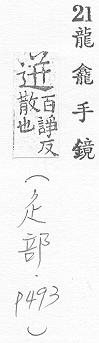 21 龍龕手鏡
迸 百諍反
散也
(辵部.P493)